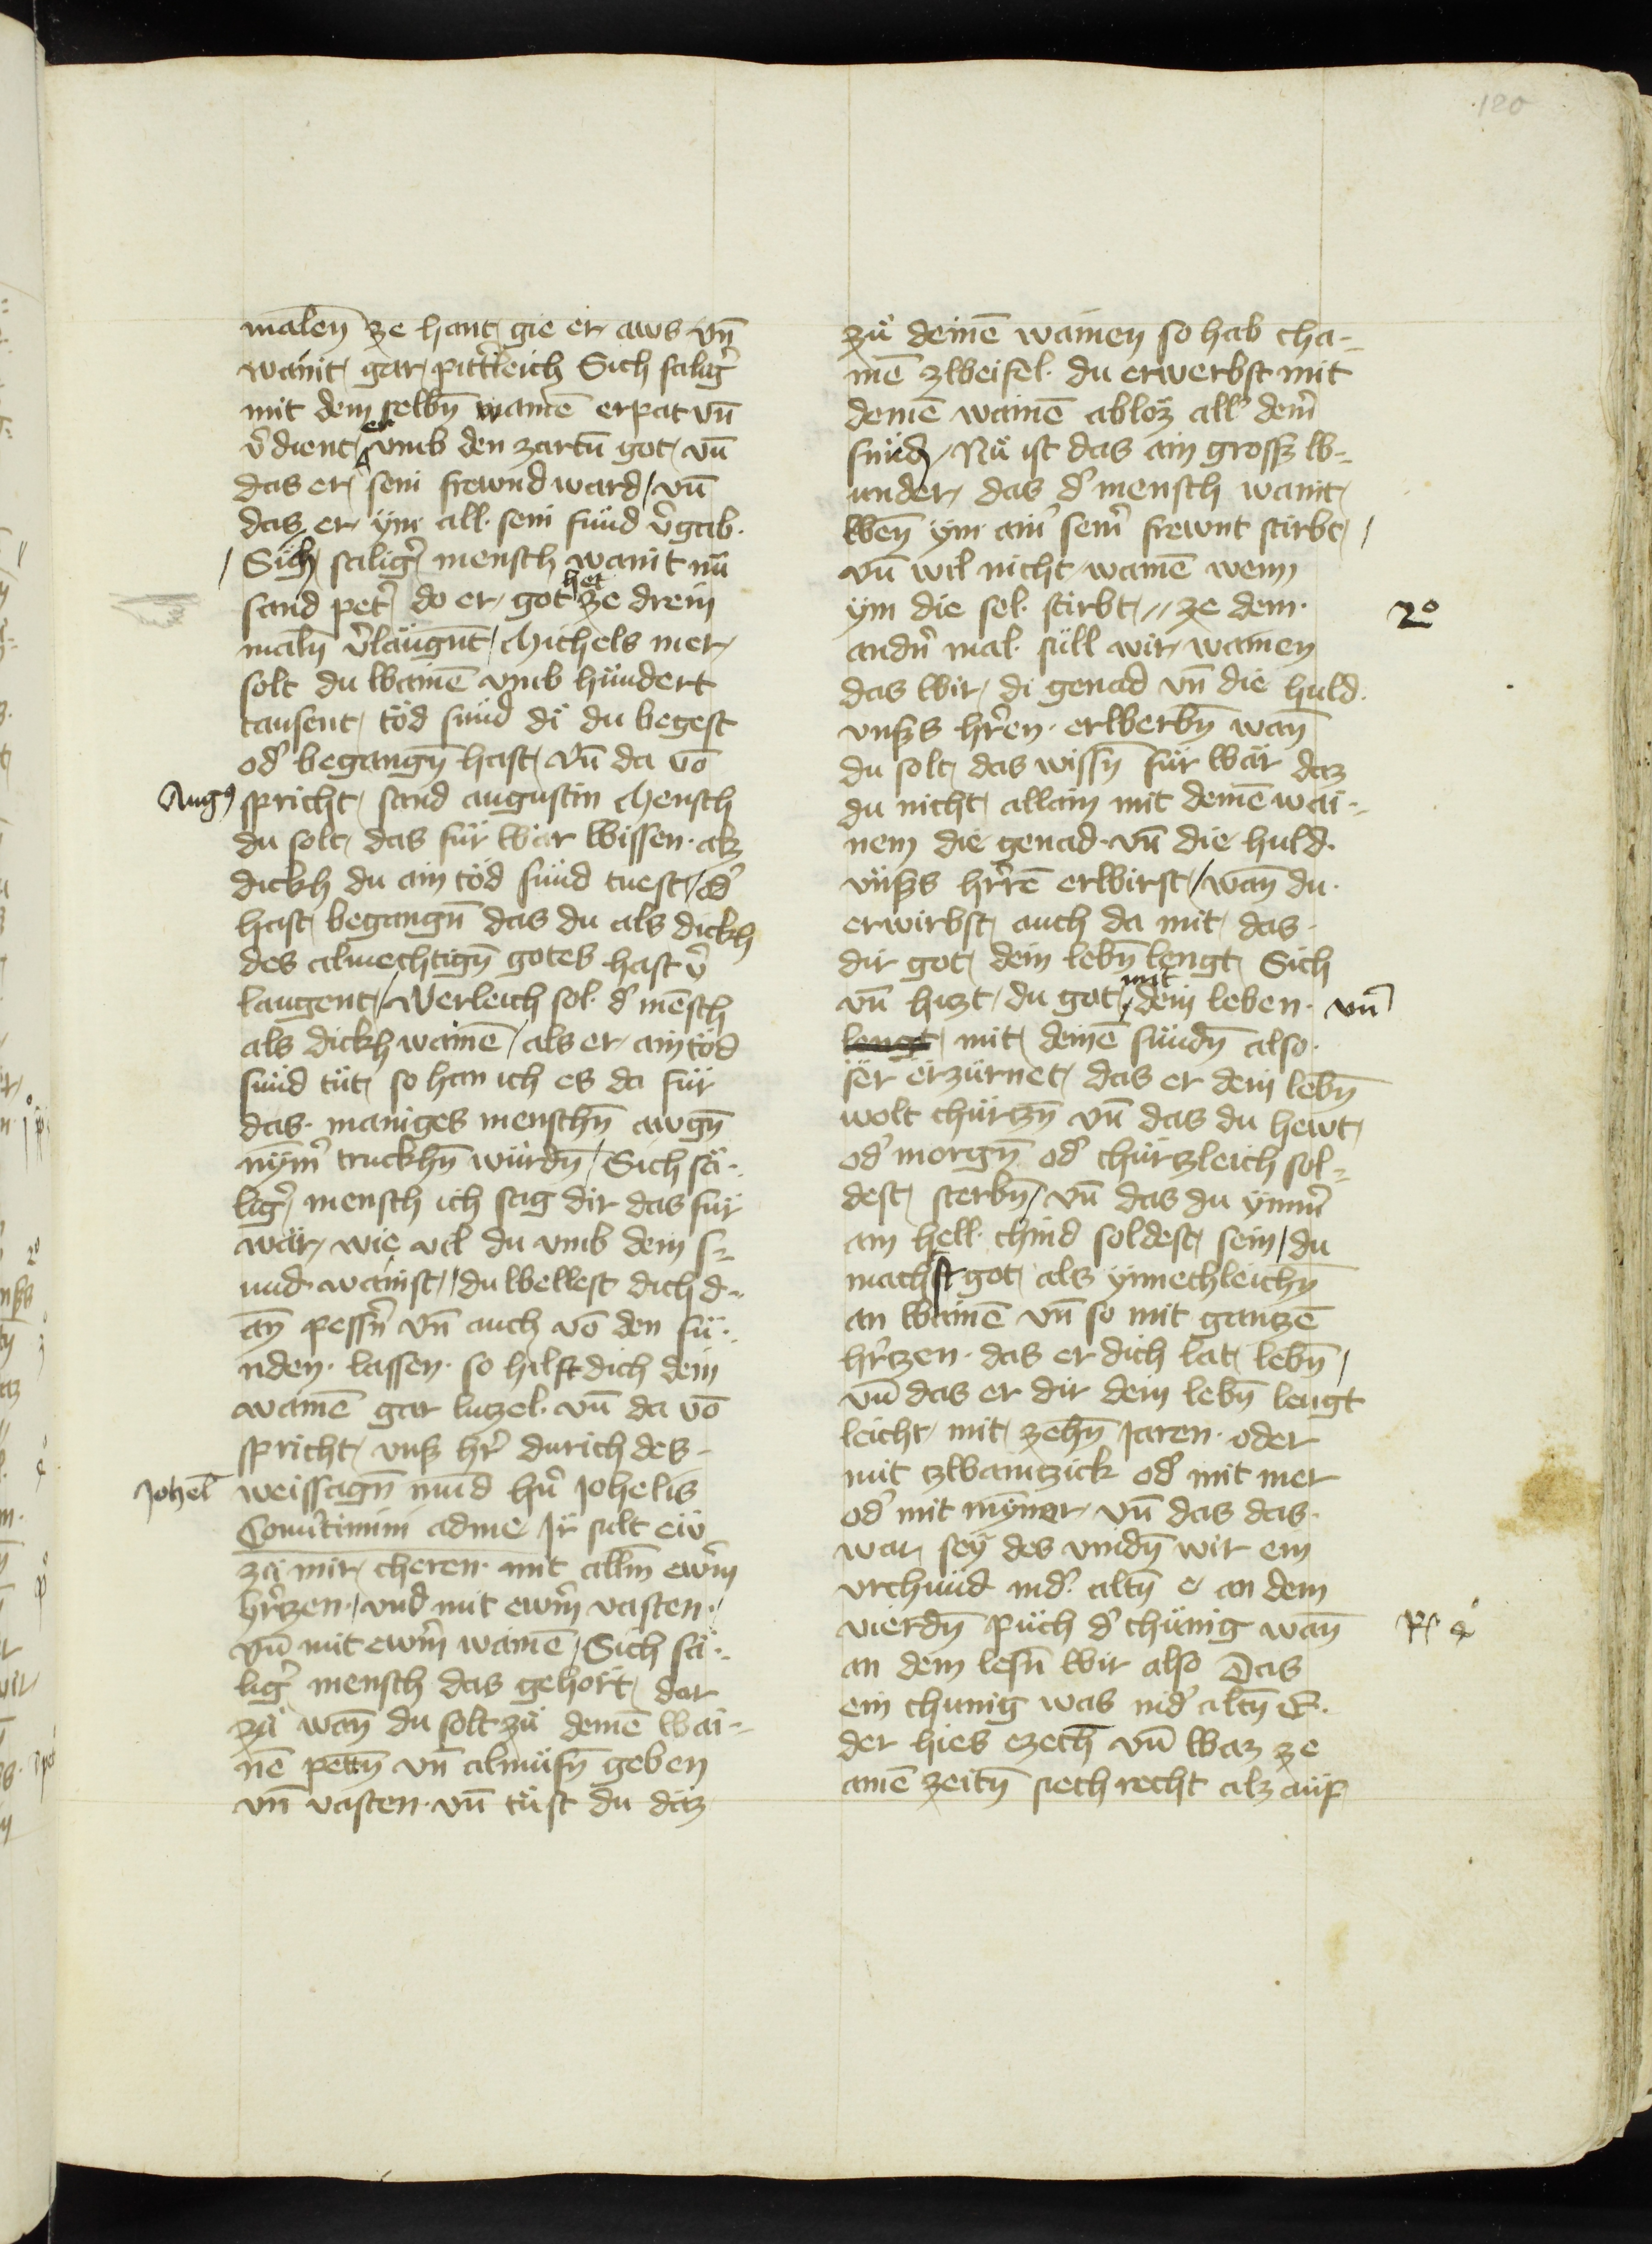 120
malen̄ ze hant gie er aws vn̄
wanit gar pitt̉leich Sich salig̉
mit dem selbn̄ wainē erpat vn̄
v̉dient er vmb den zartn̄ got vn̄
das er sein frewnd ward / vn̄
das er ym all sein sünd v̉gab.
/ Sich salig̉ mensch wanit nů
sand pet̉ do er got het ze drein
maln̄ v̉laügnt / Michels mer
solt du wainē vmb hündert
tausent töd sünd dï du begest
od̉ begangn̄ hast / vn̄ da vō
Aug⁹ spricht sand augustin Mensch
du solt das für wär wissen. alz
dickh du ain töd sünd tuest / od̉
hast begangn̄ das du als dickh
des almechtign̄ gotes hast v̉
laugent / Werleich sol d̉ mēsch
als dickh wainē / als er ain töd
sünd tüt so han ich es da für
das maniges menschn̄ awgn̄
nÿm̉ truckhn̄ würdn̄ / Sich sä-
lig̉ mensch ich sag dir das für
wär / wie vil du vmb dein s-
und wainst / du wellest dich d-
an̄ pessn̉ vn̄ auch vō den sü-
nden lassen. so hilft dich dein
wainē gar lutzel. vn̄ da vō
spricht vnß hr̉ durich des
Johel weissagn̄ mund hn̉ Johelis
Conủtimini adme Ir sult eu̇
zů mir cheren. mit allm̄ ewm̉
hr̉tzen / vnd mit ewm̉ vasten /
vn̄ mit ewm̉ wainē / Sich sä-
lig̉ mensch das gehört dar
zů wan̄ du solt zů deinē wai-
nē pettn̄ vn̄ almüsn̄ geben
vn̄ vasten. vn̄ tüst du daz
zů deinē wainen so hab cha-
inē zweifel. du erwerbst mit
deinē wainē abloz all̉ dein̉
sünd / Nů ist das ain grossz w-
under das d̉ mensch wanit
wen̄ ym ain̉ sein̉ frewnt stirbt /
vn̄ wil nicht wainē wenn
ym die sel stirbt // ze dem
andn̉ mal süll wir wainen 2º
das wir di genad vn̄ die huld
vnsßs hr̉en. erwerbn̄ wan̄
du solt das wissn̄ für wär daz
du nicht allain mit deinē wai-
nem die genad vn̄ die huld.
vnsßs hr̉rē erwirst / wan̄ du
erwirbst auch da mit das
dir got dein lebn̄ lengt Sich
vn̄ hizt du got mit dein leben. vn̄
lengt mit deinē sündn̄ also
ser erzürnet das er dein lebn̄
wolt chürtzn̄ vn̄ das du hewt
od̉ morgn̄ od̉ chürtzleich sol-
dest sterbn̄ / vn̄ das du ymm̉
ain hell chind soldest sein / du
machst got als ynnechleichn̄
an wainē vn̄ so mit gantzē
hr̉tzen. das er dich lat lebn̄ /
vn̄ das er dir dein lebn̄ lengt
leicht mit zehn̄ Jaren. oder
mit zwaintzick od̉ mit mer
od̉ mit mÿner vn̄ das das
war seÿ des vindn̄ wir ein
vrchünd ind̉ altn̄ e an dem
vierdn̄ püch d̉ chünig wan̄
an dem lesn̄ wir also Das
ein chunig was ind̉ altn̄ E.
der hies ezech̄ vn̄ waz ze
ainē zeitn̄ siech recht alz auf